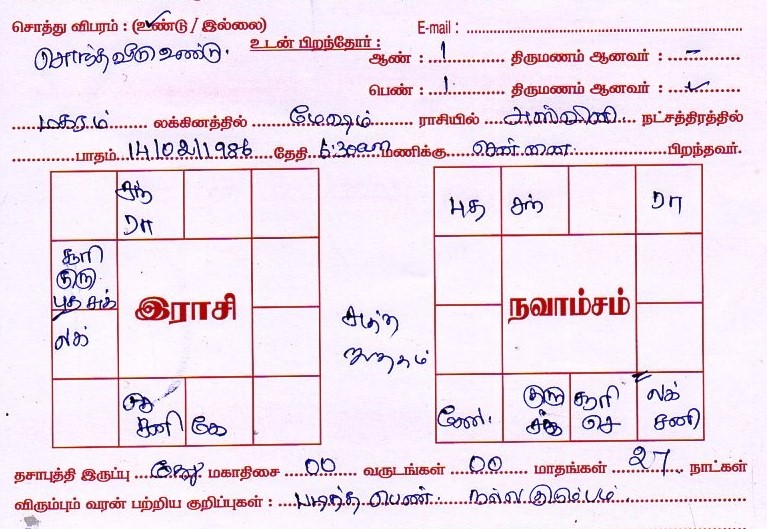 சொத்து விபரம் : (உண்டு / இல்லை) E-mail :
சொந்த வீடு உண்டு. உடன் பிறந்தோர் : ஆண் : 1 திருமணம் ஆனவர் : –
பெண் : 1 திருமணம் ஆனவர் : ✓
மகரம் லக்கினத்தில் மேஷம் ராசியில் அஸ்வினி நட்சத்திரத்தில்
பாதம் 14/02/1986 தேதி 5:30am மணிக்கு சென்னை பிறந்தவர்.
சந்
ரா
சூரி
குரு
புத சுக்
லக்
இராசி
சனி கே
சுத்த
ஜாதகம்
புத சந் ரா
நவாம்சம்
கே. குரு சூரி லக்
சுக் செ சனி
தசாபுத்தி இருப்பு கேது மகாதிசை 00 வருடங்கள் 00 மாதங்கள் 27 நாட்கள்
விரும்பும் வரன் பற்றிய குறிப்புகள் : படித்த பெண். நல்ல குடும்பம்.